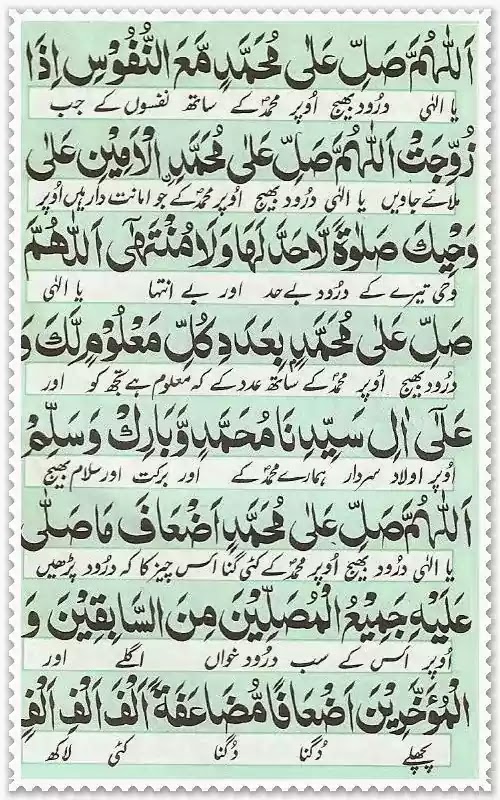 اَللّٰهُمَّ صَلِّ عَلٰى مُحَمَّدٍ مَّعَ النُّفُوْسِ اِذَا
یا الٰہی درُود بھیج اُوپر محمدؐ کے ساتھ نفسوں کے جب
زُوِّجَتْ اَللّٰهُمَّ صَلِّ عَلٰى مُحَمَّدِنِ الْاَمِيْنِ عَلٰى
ملائے جاویں یا الٰہی درُود بھیج اُوپر محمدؐ کے جو امانت دار ہیں اُوپر
وَحْيِكَ صَلٰوةً لَّاحَدَّ لَهَا وَلَا مُنْتَهٰى اَللّٰهُمَّ
وحی تیرے کے درُود بے حد اور بے انتہا یا الٰہی
صَلِّ عَلٰى مُحَمَّدٍ بِعَدَدِ كُلِّ مَعْلُوْمٍ لَّكَ وَ
درُود بھیج اُوپر محمدؐ کے ساتھ عدد کے کہ معلوم ہے تجھ کو اور
عَلٰٓى اٰلِ سَيِّدِنَا مُحَمَّدٍ وَّبَارِكْ وَسَلِّمْ
اُوپر اولاد سردار ہمارے محمدؐ کے اور برکت اور سلام بھیج
اَللّٰهُمَّ صَلِّ عَلٰى مُحَمَّدٍ اَضْعَافَ مَا صَلّٰى
یا الٰہی درُود بھیج اُوپر محمدؐ کے کئی گنا اس چیز کا کہ درُود پڑھیں
عَلَيْهِ جَمِيْعُ الْمُصَلِّيْنَ مِنَ السَّابِقِيْنَ وَ
اُوپر اُس کے سب درُود خواں اگلے اور
الْمُؤَخَّرِيْنَ اَضْعَافًا مُّضَاعَفَةً اَلْفَ اَلْفِ اَلْفٍ
پچھلے دُگنا دُگنا کئی لاکھ